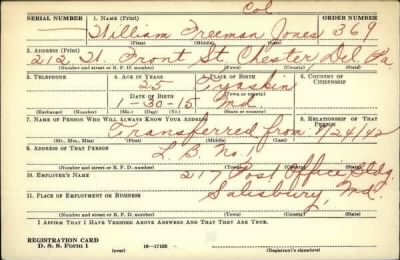 Col
SERIAL NUMBER 1. NAME (Print) ORDER NUMBER
William Freeman Jones 369
(First) (Middle) (Last)
2. ADDRESS (Print)
212 W. Front St. Chester Del Pa
(Number and street or R. F. D. number) (Town) (County) (State)
3. TELEPHONE 4. AGE IN YEARS 5. PLACE OF BIRTH 6. COUNTRY OF CITIZENSHIP
25 Tyaskin
DATE OF BIRTH (Town or county)
1-30-15 Md.
(Exchange) (Number) (Mo.) (Day) (Yr.) (State or country)
7. NAME OF PERSON WHO WILL ALWAYS KNOW YOUR ADDRESS 8. RELATIONSHIP OF THAT PERSON
Transferred from 7/24/42
(Mr., Mrs., Miss) (First) (Middle) (Last)
9. ADDRESS OF THAT PERSON
L. B. No. 1
(Number and street or R. F. D. number) (Town) (County) (State)
10. EMPLOYER'S NAME
217 Post Office Bldg.
11. PLACE OF EMPLOYMENT OR BUSINESS
Salisbury, Md.
(Number and street or R. F. D. number) (Town) (County) (State)
I AFFIRM THAT I HAVE VERIFIED ABOVE ANSWERS AND THAT THEY ARE TRUE.
REGISTRATION CARD
D. S. S. Form 1 (over) 16-17105 (Registrant's signature)